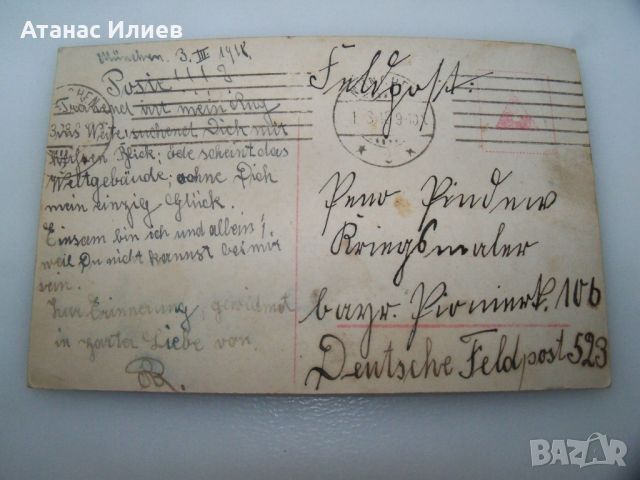 Атанас Илиев
München. 3. III 1918.
Posic!!!!
Tränend irrt mein Aug
ins Weite, suchend Dich mit
Blick; öde scheint das
Weltgebäude; ohne Dich
mein einzig Glück.
Einsam bin ich und allein!
weil Du nicht kannst bei mir
sein.
Zur Erinnerung, gewidmet
in zarter Liebe von.
Feldpost.
Peno Pindew
Kriegsmaler
bayr. Pionierk. 106
Deutsche Feldpost 523
BAZAR